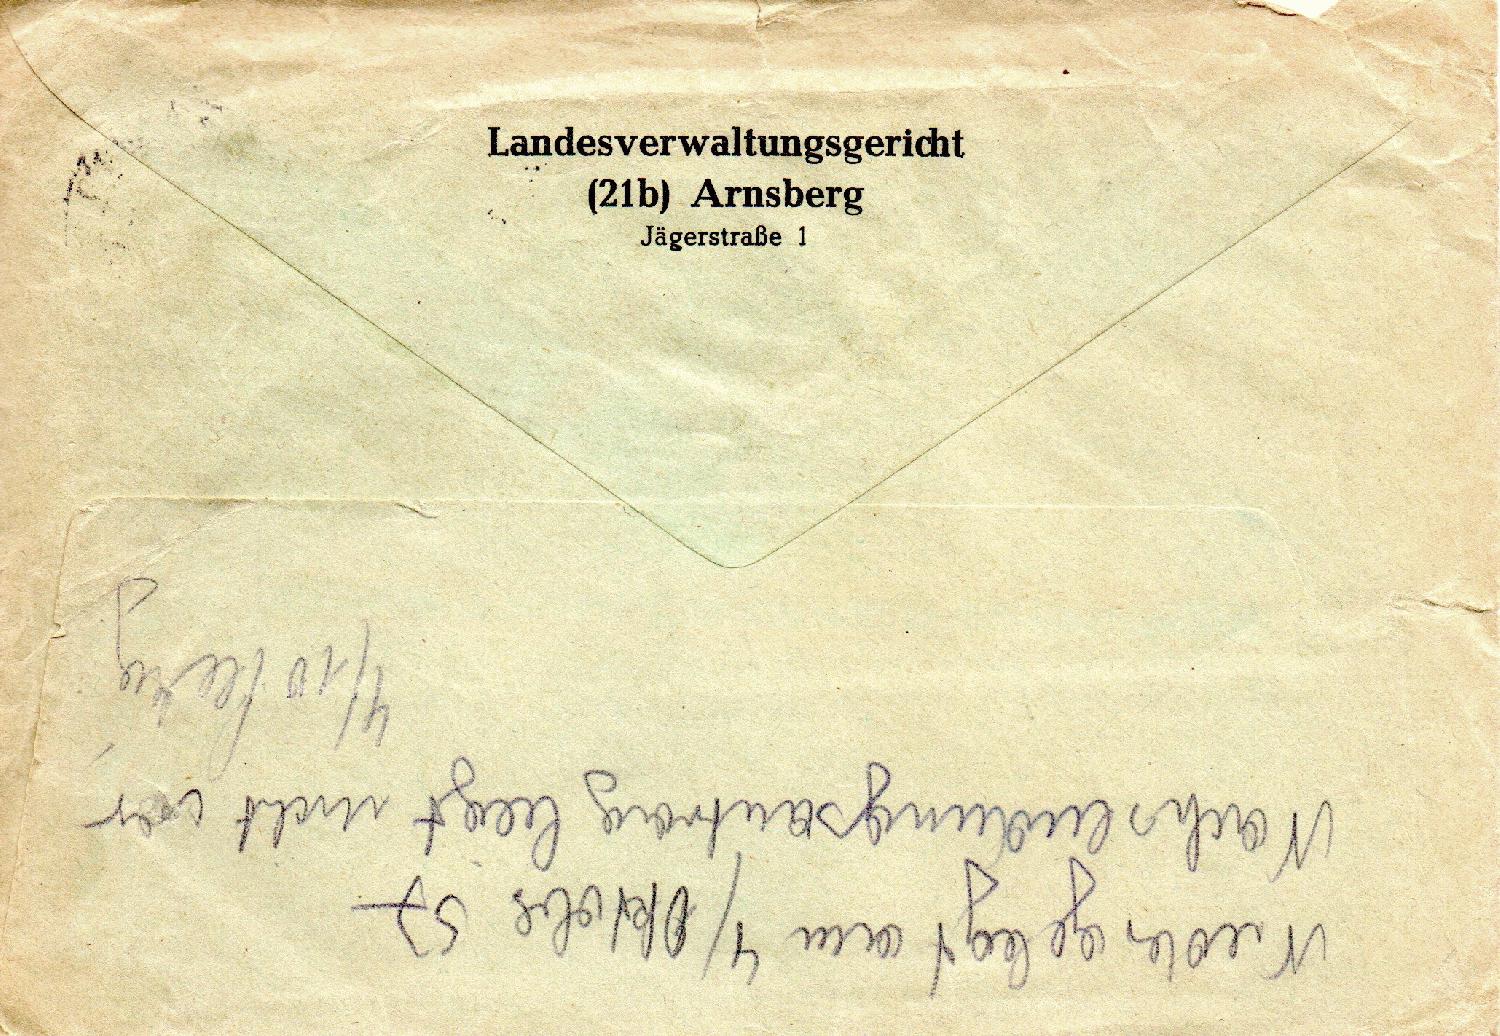 Landesverwaltungsgericht
(21b) Arnsberg
Jägerstraße 1
Niedergelegt am 4/Oktober 57
Nachsendungsantrag liegt nicht vor
4/10